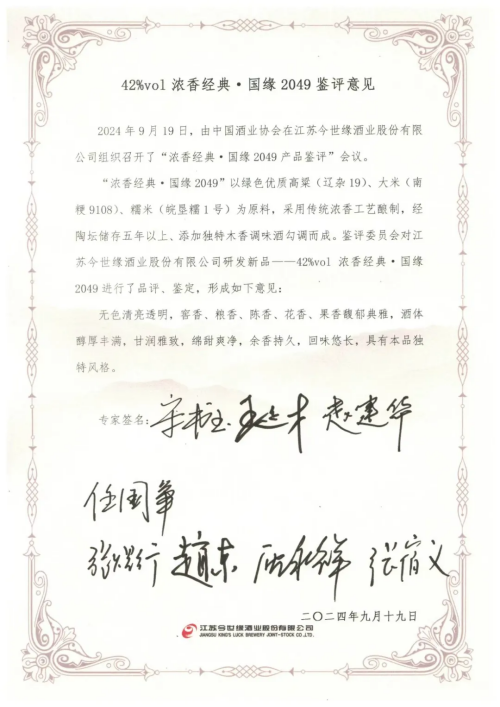 42%vol 浓香经典·国缘 2049 鉴评意见
2024 年 9 月 19 日，由中国酒业协会在江苏今世缘酒业股份有限
公司组织召开了“浓香经典·国缘 2049 产品鉴评”会议。
“浓香经典·国缘 2049”以绿色优质高粱（辽杂 19）、大米（南
粳 9108）、糯米（皖垦糯 1 号）为原料，采用传统浓香工艺酿制，经
陶坛储存五年以上、添加独特木香调味酒勾调而成。鉴评委员会对江
苏今世缘酒业股份有限公司研发新品——42%vol 浓香经典·国缘
2049 进行了品评、鉴定，形成如下意见：
无色清亮透明，窖香、粮香、陈香、花香、果香馥郁典雅，酒体
醇厚丰满，甘润雅致，绵甜爽净，余香持久，回味悠长，具有本品独
特风格。
专家签名：宋书玉 王延才 赵建华
任国军
赵东 张宿义
二〇二四年九月十九日
江苏今世缘酒业股份有限公司
JIANGSU KING'S LUCK BREWERY JOINT-STOCK CO.,LTD.